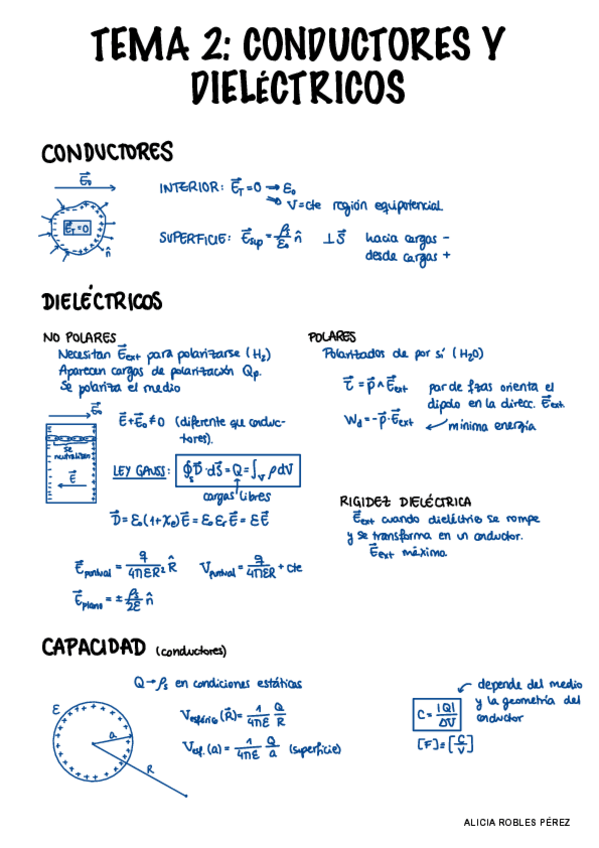 TEMA 2: CONDUCTORES Y
DIELÉCTRICOS
CONDUCTORES
E⃗₀
E⃗_T=0
n̂
INTERIOR: E⃗_T=0 → ε₀
→ V=cte región equipotencial.
SUPERFICIE: E⃗_sup = ρ_s/ε₀ n̂ ⊥S⃗ hacia cargas -
desde cargas +
DIELÉCTRICOS
NO POLARES
Necesitan E⃗ext para polarizarse (H₂)
Aparecen cargas de polarización Qp.
Se polariza el medio
E⃗₀
se
neutralizan
E⃗
E⃗+E⃗₀≠0 (diferente que conduc-
tores).
LEY GAUSS: ∮_S D⃗·dS⃗=Q=∫_V ρdV
cargas libres
D⃗=ε₀(1+χe)E⃗=ε₀εrE⃗=εE⃗
E⃗puntual = q/4πεR² R̂ Vpuntual = q/4πεR + cte
E⃗plano = ± ρs/2ε n̂
POLARES
Polarizados de por sí (H₂O)
τ⃗=p⃗∧E⃗ext par de fzas orienta el
dipolo en la direcc. E⃗ext.
Wd=-p⃗·E⃗ext ← mínima energía
RIGIDEZ DIELÉCTRICA
E⃗ext cuando dieléctrico se rompe
y se transforma en un conductor.
E⃗ext máximo.
CAPACIDAD (conductores)
Q→ρs en condiciones estáticas
ε
a
R
Vesférico(R⃗)= 1/4πε Q/R
Vesf.(a)= 1/4πε Q/a (superficie)
C= |Q|/ΔV
depende del medio
y la geometría del
conductor
[F]=[C/V]
ALICIA ROBLES PÉREZ